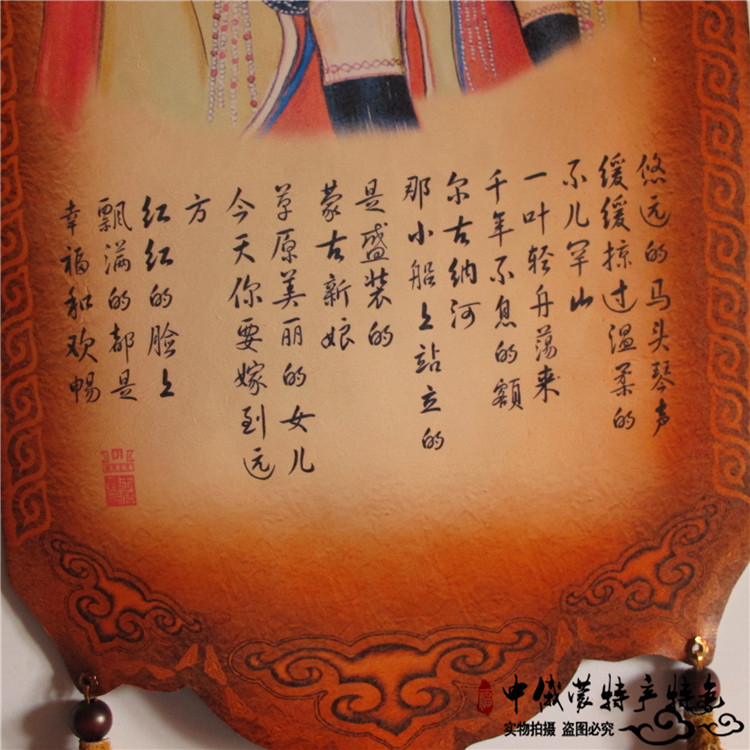 悠远的马头琴声
缓缓掠过温柔的
不儿罕山
一叶轻舟荡来
千年不息的额
尔古纳河
那小船上站立的
是盛装的
蒙古新娘
草原美丽的女儿
今天你要嫁到远
方
红红的脸上
飘满的都是
幸福和欢畅
中俄蒙特产特色
实物拍摄 盗图必究